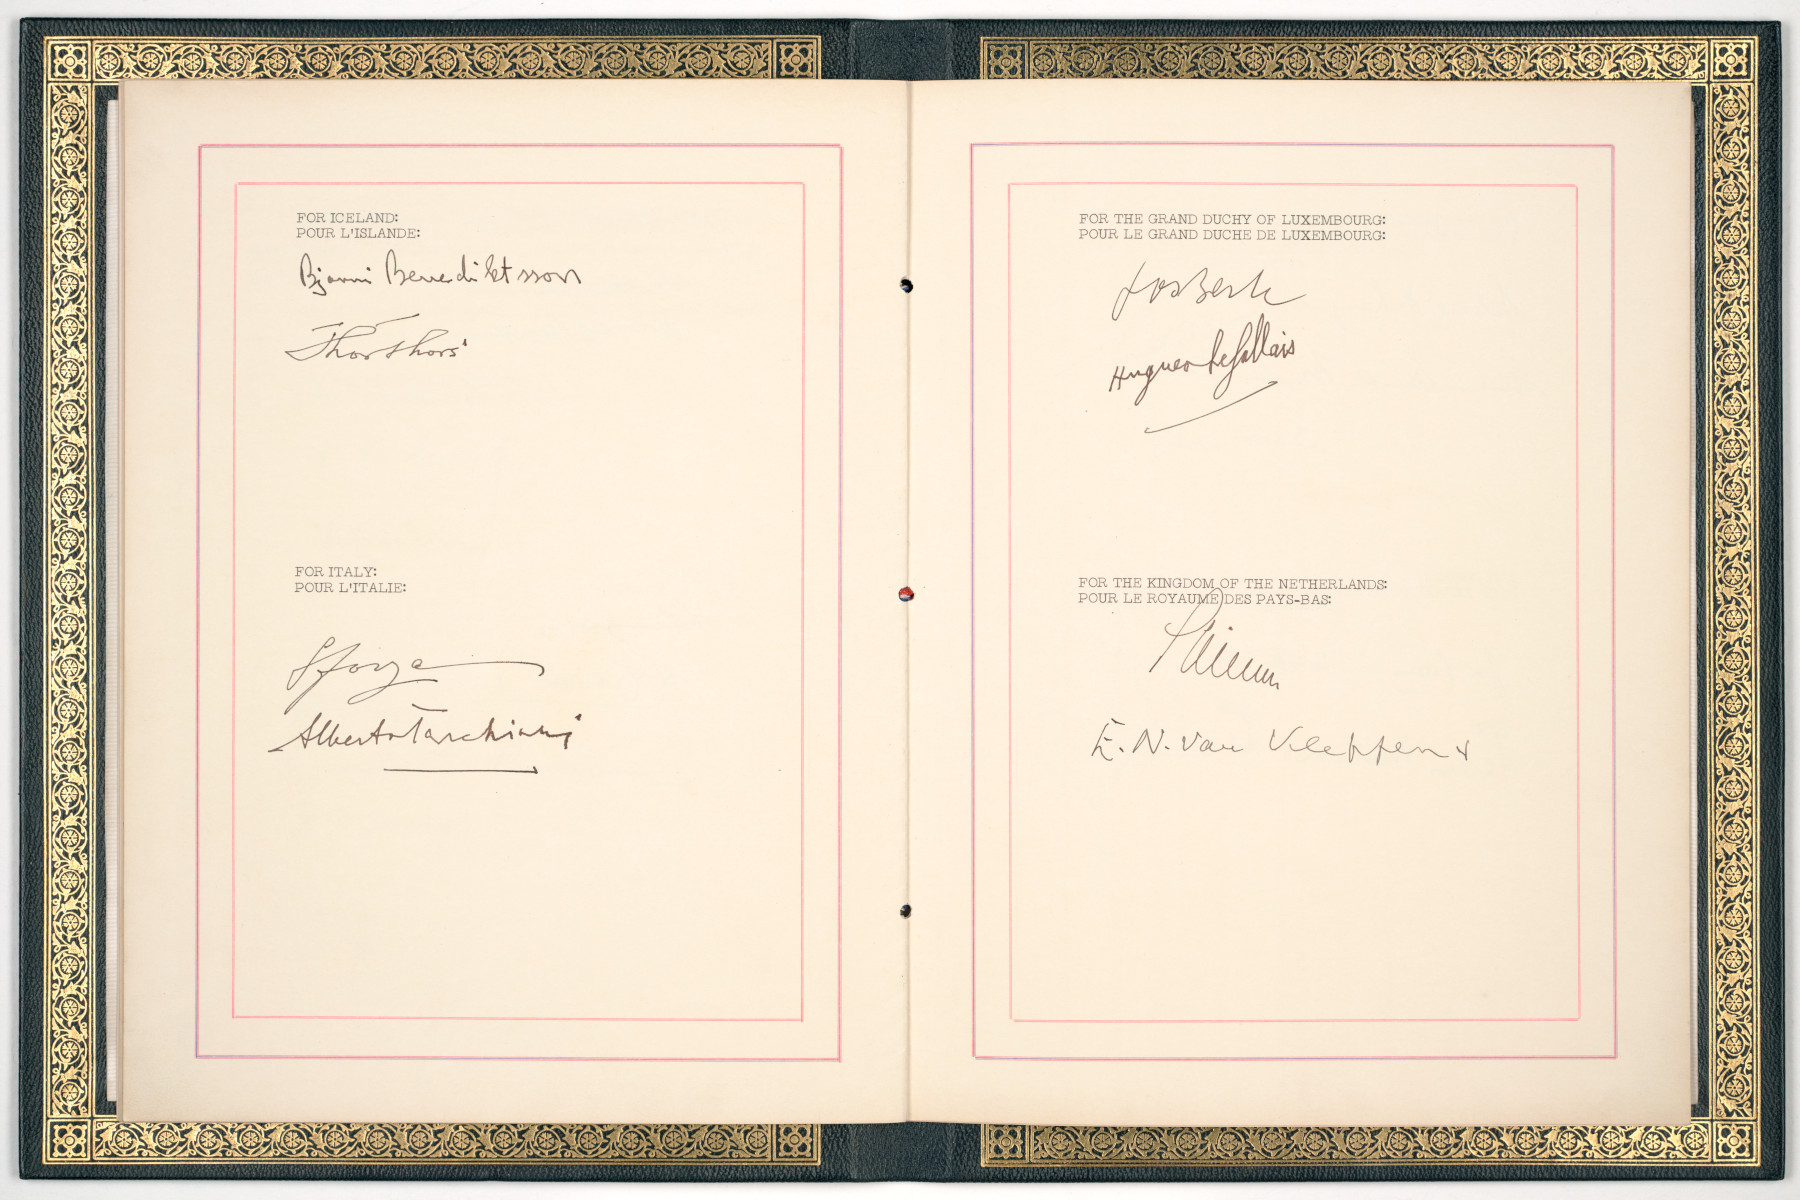 FOR ICELAND:
POUR L'ISLANDE:
Bjarni Benediktsson
Thor Thors
FOR ITALY:
POUR L'ITALIE:
Sforza
Alberto Tarchiani
FOR THE GRAND DUCHY OF LUXEMBOURG:
POUR LE GRAND DUCHE DE LUXEMBOURG:
Jos Bech
Hugues Le Gallais
FOR THE KINGDOM OF THE NETHERLANDS:
POUR LE ROYAUME DES PAYS-BAS:
E. N. van Kleffens